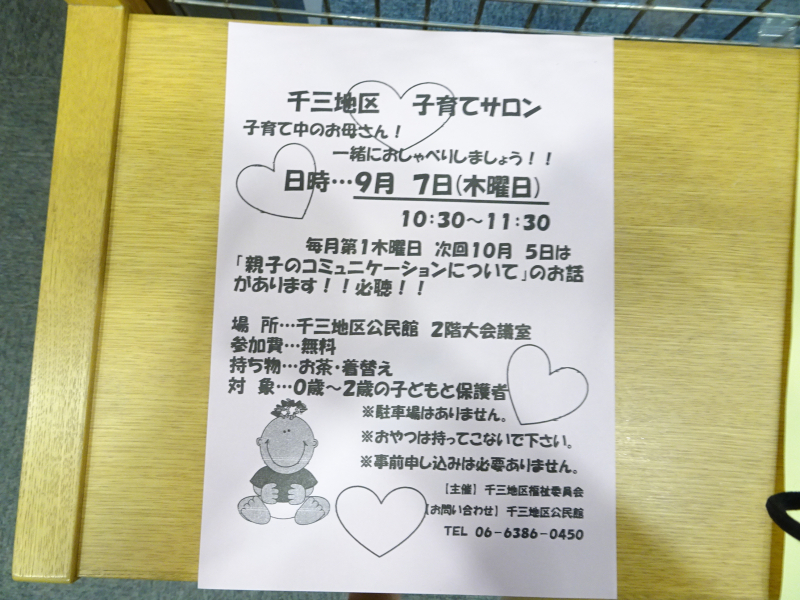 千三地区 子育てサロン
子育て中のお母さん！
一緒におしゃべりしましょう！！
日時…9月 7日(木曜日)
10:30～11:30
毎月第1木曜日 次回10月 5日は
「親子のコミュニケーションについて」のお話
があります！！必聴！！
場 所…千三地区公民館 2階大会議室
参加費…無料
持ち物…お茶・着替え
対 象…0歳～2歳の子どもと保護者
※駐車場はありません。
※おやつは持ってこないで下さい。
※事前申し込みは必要ありません。
【主催】 千三地区福祉委員会
【お問い合わせ】 千三地区公民館
TEL 06-6386-0450